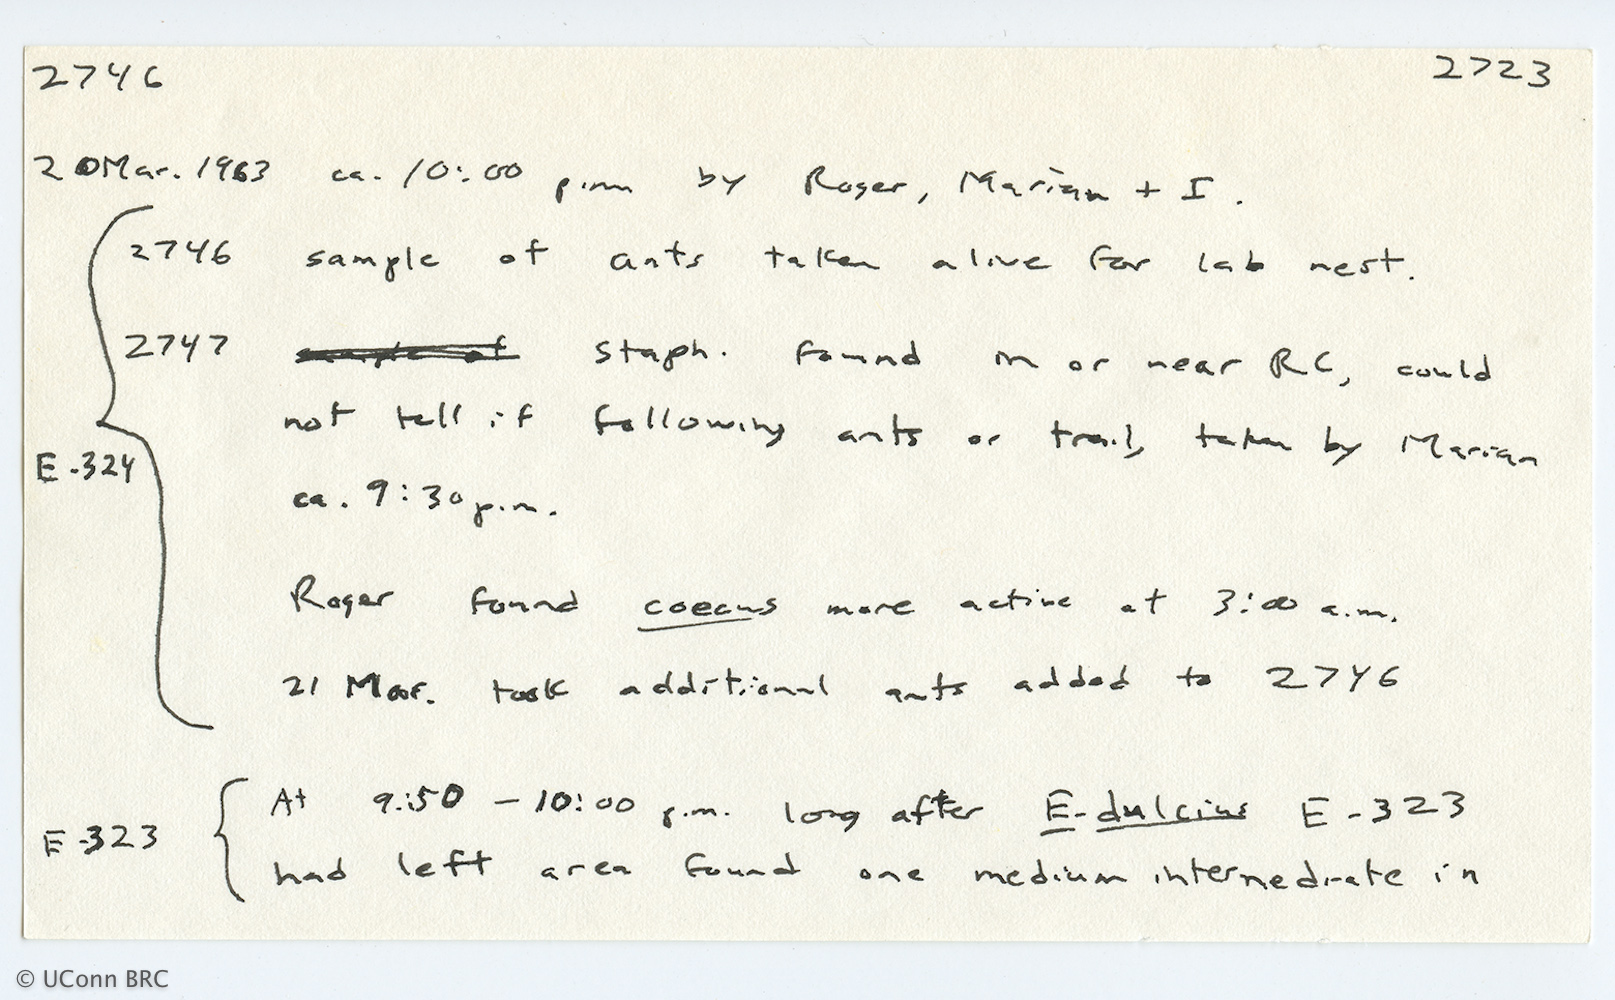 2746 2723
20 Mar. 1963 ca. 10:00 p.m. by Roger, Marian + I.
2746 sample of ants taken alive for lab nest.
2747 sample of staph. found in or near RC, could
not tell if following ants or trail, taken by Marian
E-324
ca. 9:30 p.m.
Roger found coecus more active at 3:00 a.m.
21 Mar. took additional ants added to 2746
At 9:50 - 10:00 p.m. long after E. dulcius E-323
E-323
had left area found one medium intermediate in
© UConn BRC